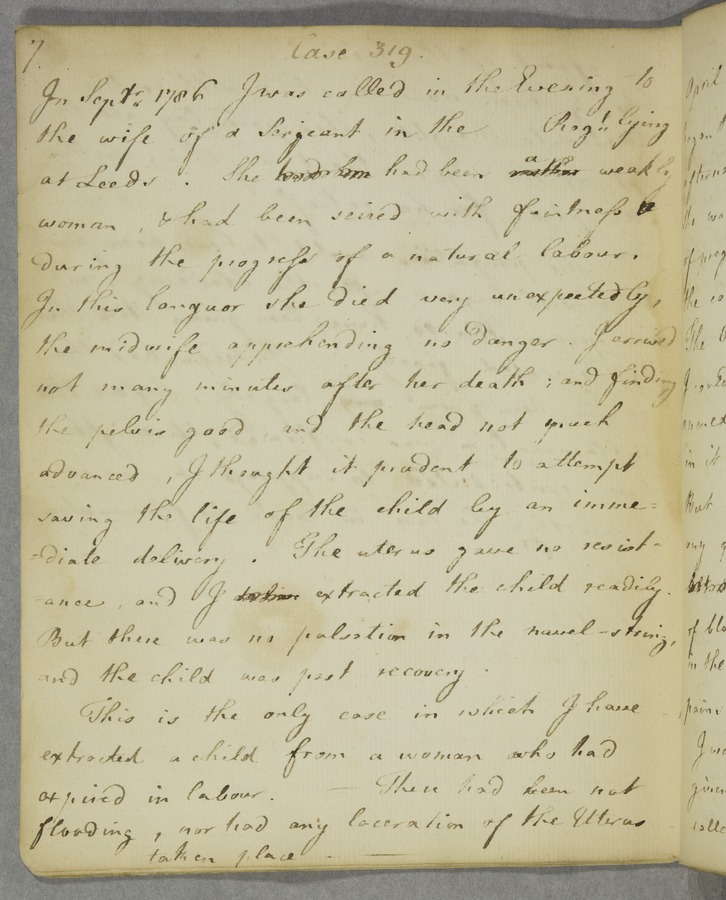 7. Case 319.
In Septr. 1786 I was called in the Evening to
the wife of a Serjeant in the Regt. lying
at Leeds. She had been a weakly
woman, & had been seized with faintness
during the progress of a natural labour.
In this languor she died very unexpectedly,
the midwife apprehending no danger. I arrived
not many minutes after her death; and finding
the pelvis good, and the head not much
advanced, I thought it prudent to attempt
saving the life of the child by an imme=
=diate delivery. The uterus gave no resist=
=ance, and I extracted the child readily.
But there was no pulsation in the navel-string,
and the child was past recovery.
This is the only case in which I have
extracted a child from a woman who had
expired in labour. — There had been not
flooding, nor had any laceration of the Uterus
taken place —
April